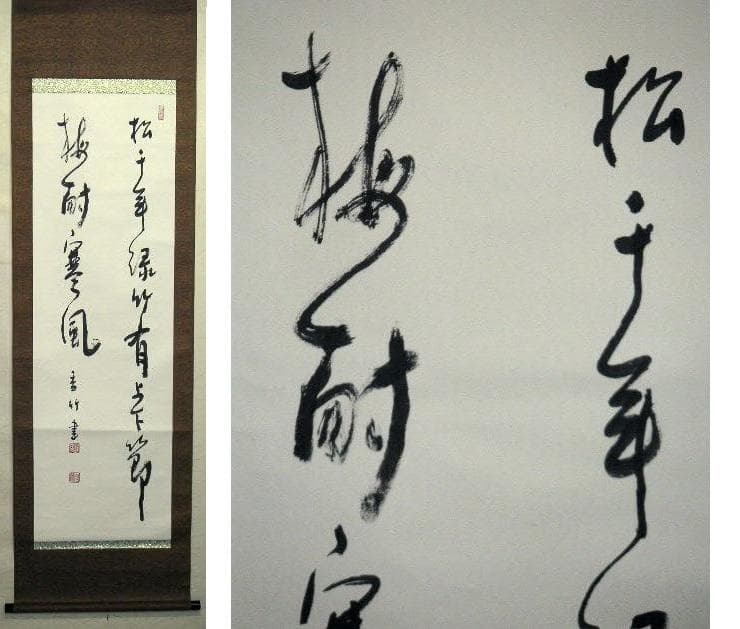 松千年緑竹有上下節
梅耐寒風
香竹書
梅耐寒
松千年